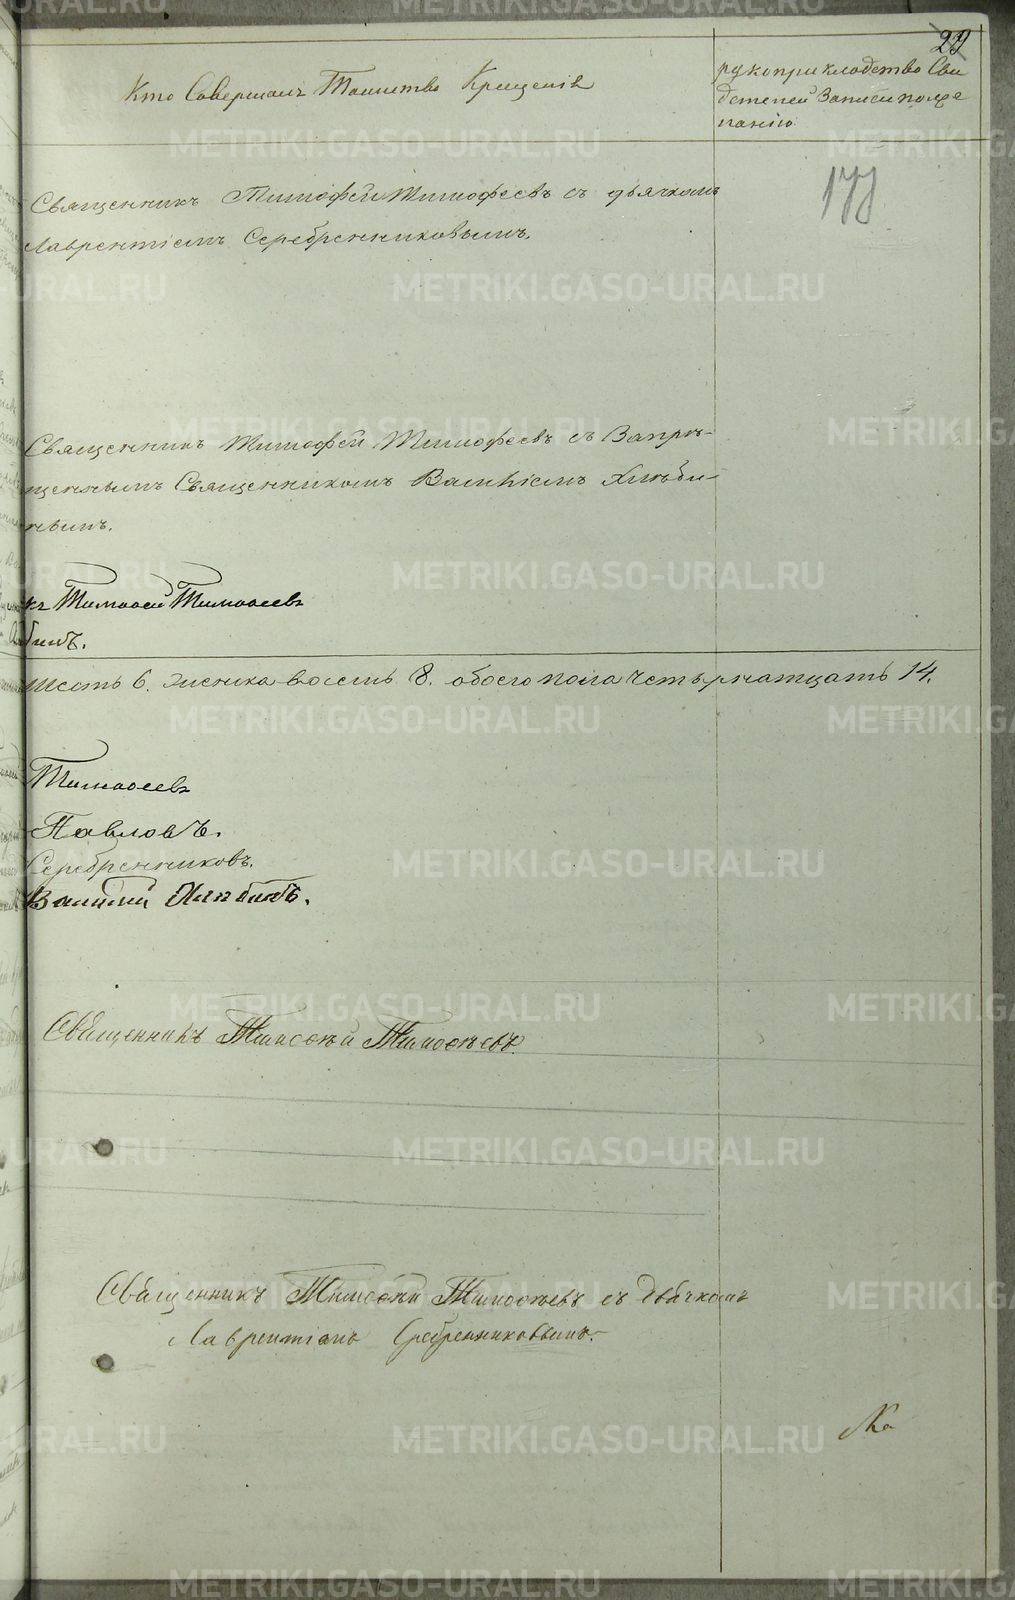 29
Кто Совершалъ Таинство Крещенія
рукоприкладство Сви
детелей Записи поже
ланію
177
Священникъ Тимофей Тимофеевъ съ дьячкомъ
Лаврентіемъ Серебренниковымъ.
Священникъ Тимофей Тимофеевъ съ Запре-
щеннымъ Священникомъ Васи­ліемъ Хлюби-
нымъ.
къ Тимоѳей Тимоѳеевъ
бинъ.
шесть 6. женска восемь 8. обоего пола четырнатцать 14.
Тимоѳеевъ
Павловъ.
Серебренниковъ.
Василій
Священникъ Тимоѳей Тимоѳеевъ.
Священникъ Тимоѳей Тимоѳеевъ съ Дьячкомъ
Лаврентіемъ Серебренниковымъ.
METRIKI.GASO-URAL.RU